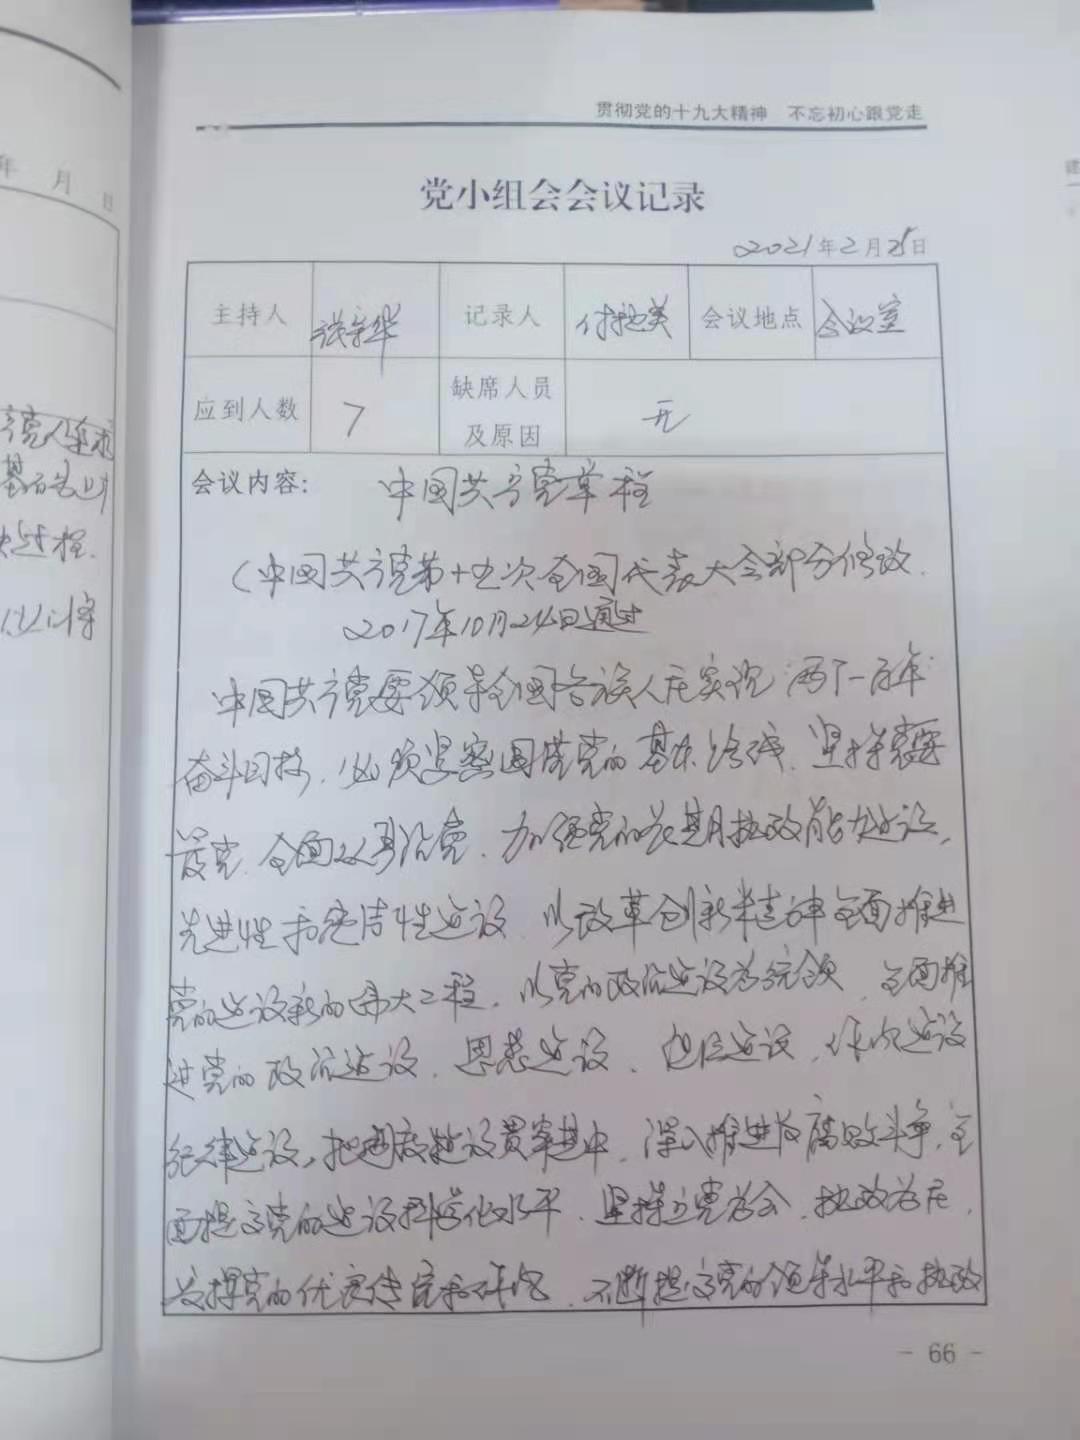 年 月 日
贯彻党的十九大精神 不忘初心跟党走
党小组会会议记录
2021年2月25日
主持人 张 华 记录人 付艳美 会议地点 会议室
应到人数 7 缺席人员及原因 无
会议内容: 中国共产党章程
(中国共产党第十九次全国代表大会部分修改.
2017年10月24日通过
中国共产党要领导全国各族人民实现"两个一百年"
奋斗目标, 必须紧密围绕党的基本路线. 坚持党要
管党. 全面从严治党. 加强党的长期执政能力建设,
先进性和纯洁性建设. 以改革创新精神全面推进
党的建设新的伟大工程. 以党的政治建设为统领. 全面推
进党的政治建设. 思想建设. 组织建设. 作风建设
纪律建设, 把制度建设贯穿其中. 深入推进反腐败斗争, 全
面提高党的建设科学化水平. 坚持立党为公. 执政为民,
发扬党的优良传统和作风. 不断提高党的领导水平和执政
- 66 -